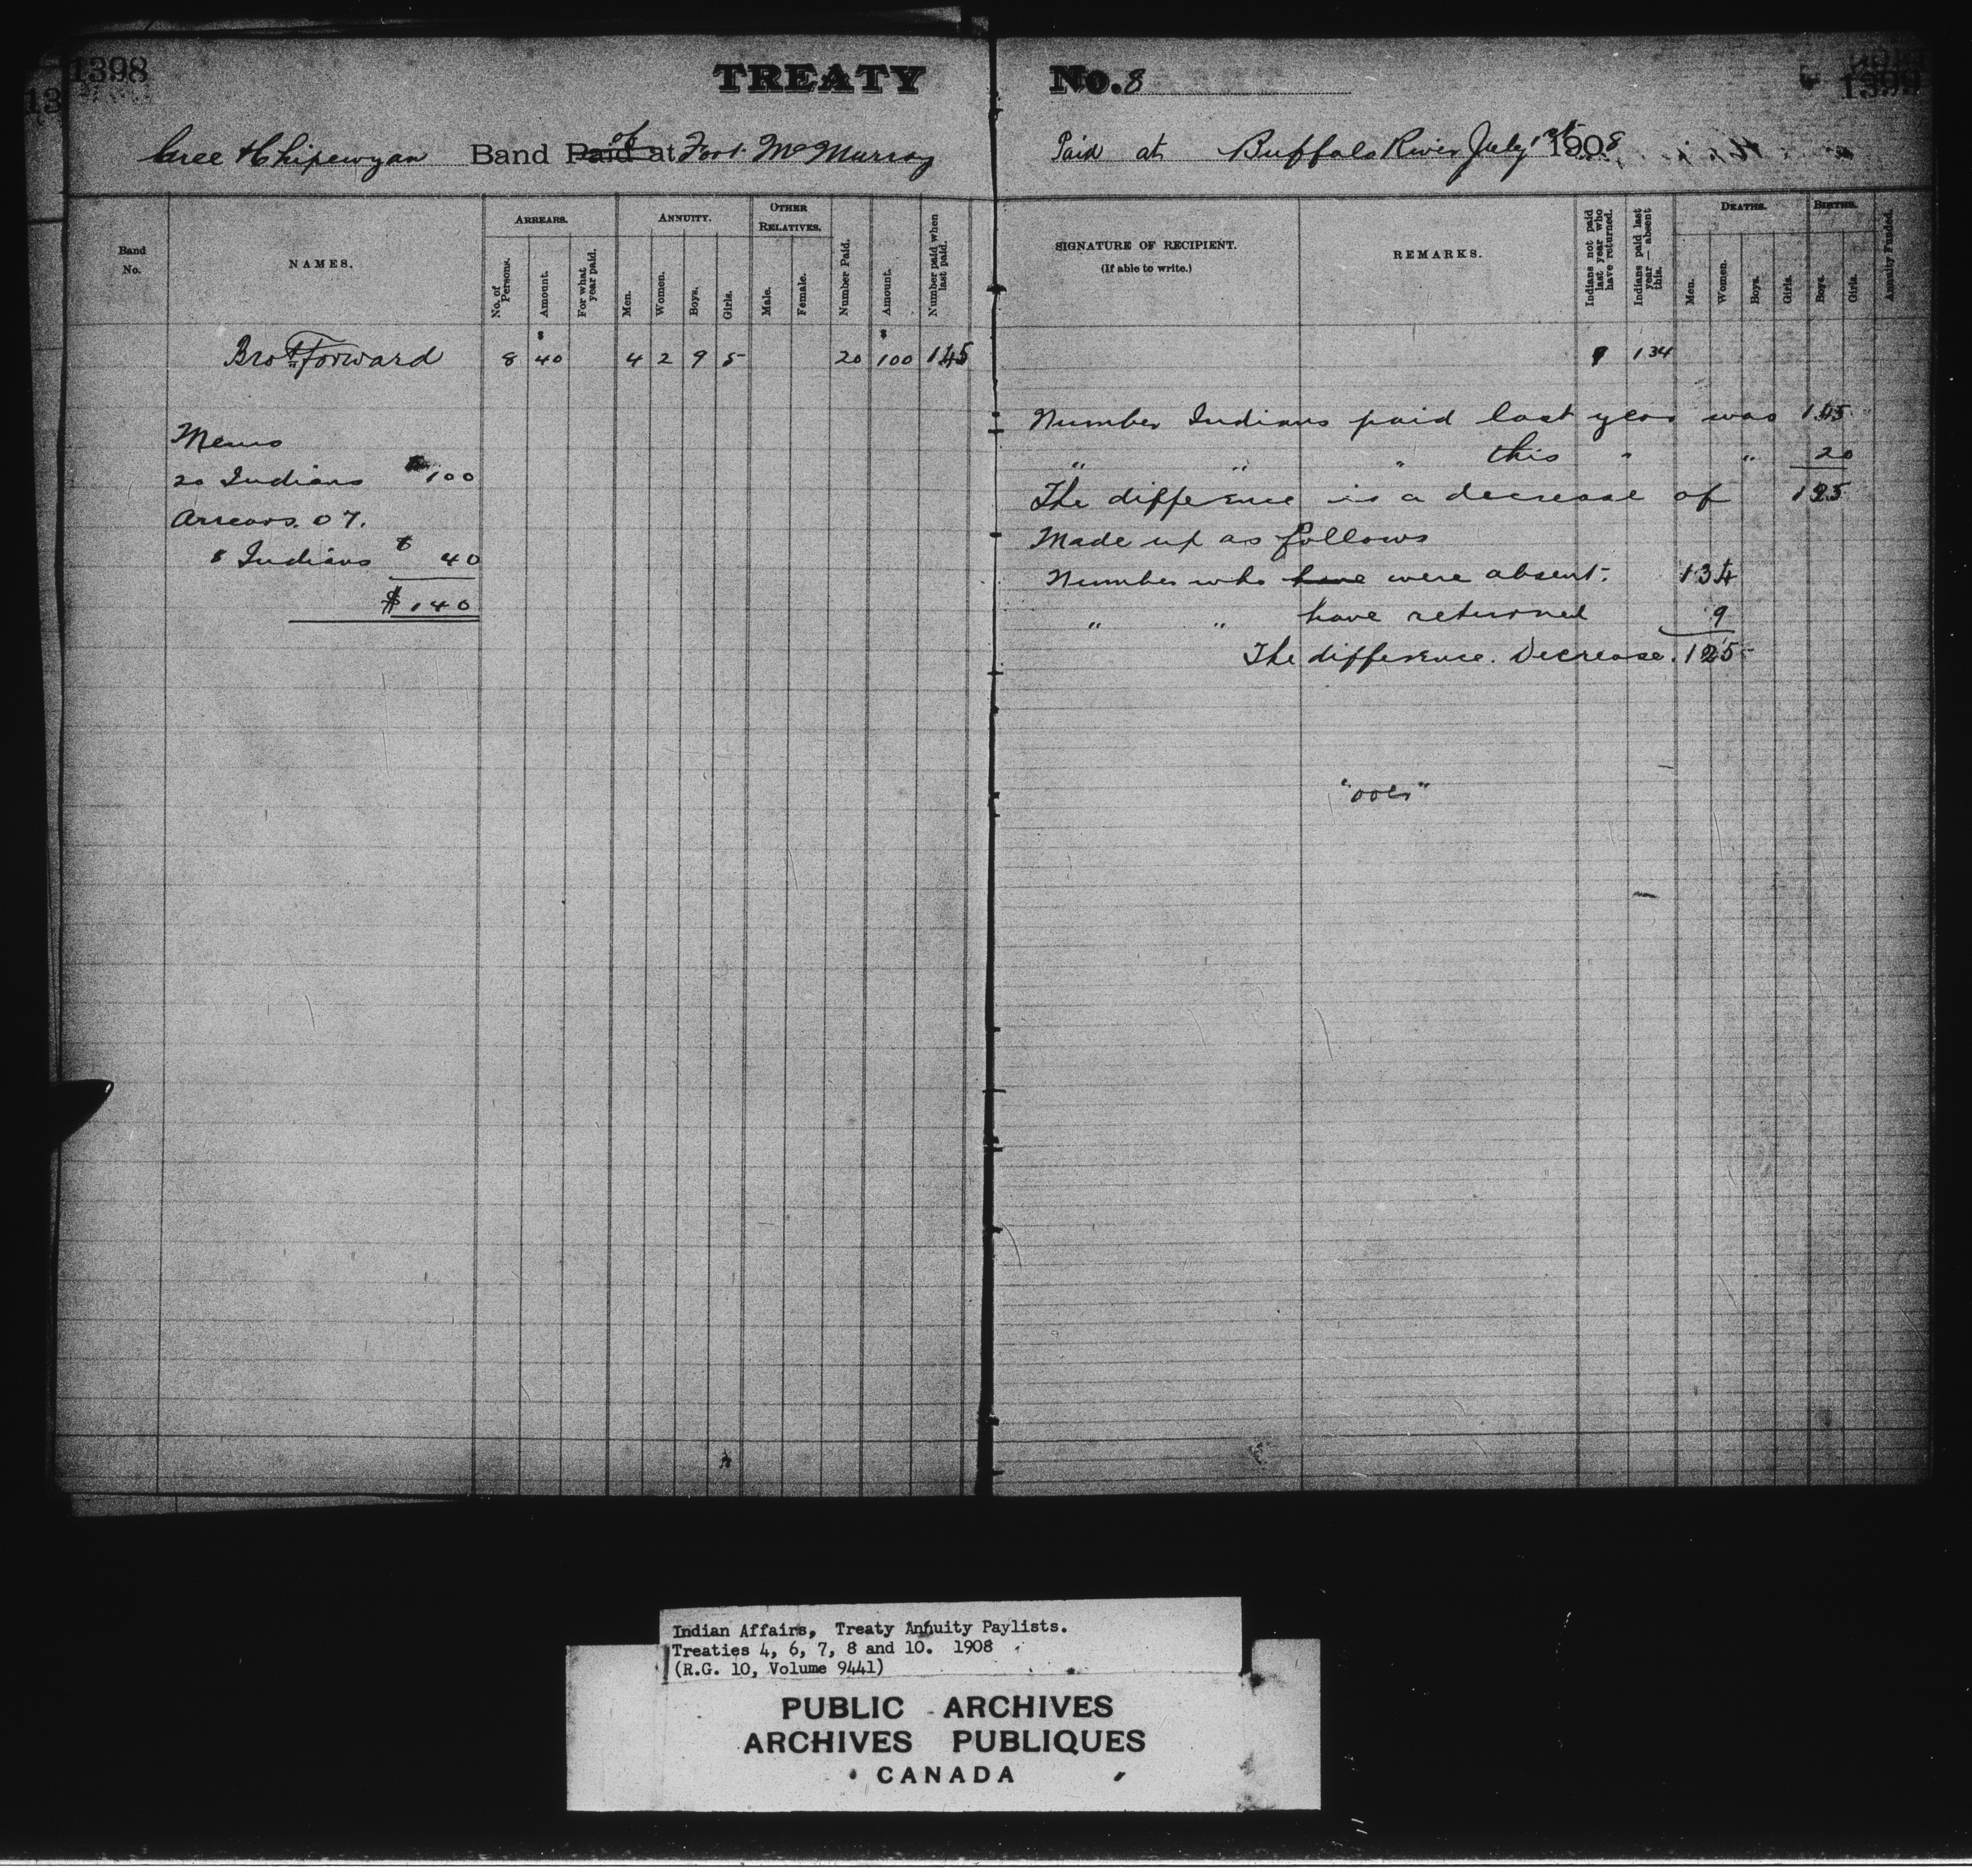 1398
TREATY No. 8
1399
Cree & Chipewyan Band Paid at of Fort McMurray
Paid at Buffalo River July 1st 1908
Band No.
NAMES.
ARREARS.
No. of Persons.
Amount.
For what year paid.
ANNUITY.
Men.
Women.
Boys.
Girls.
OTHER RELATIVES.
Male.
Female.
Number Paid.
Amount.
Number paid when last paid.
SIGNATURE OF RECIPIENT.
(If able to write.)
REMARKS.
Indians not paid last year who have returned.
Indians paid last year—absent this.
DEATHS.
Men.
Women.
Boys.
Girls.
BIRTHS.
Boys.
Girls.
Annuity Funded.
Brot Forward 8 $40 4 2 9 5 20 $100 145 9 134
Memo
20 Indians $100
Arrears. 07.
8 Indians $ 40
$140
Number Indians paid last year was 145
" " " this " " 20
The difference is a decrease of 125
Made up as follows
Number who have were absent. 134
" " have returned 9
The difference. Decrease. 125
Indian Affairs, Treaty Annuity Paylists.
Treaties 4, 6, 7, 8 and 10. 1908
(R.G. 10, Volume 9441)
PUBLIC ARCHIVES
ARCHIVES PUBLIQUES
CANADA